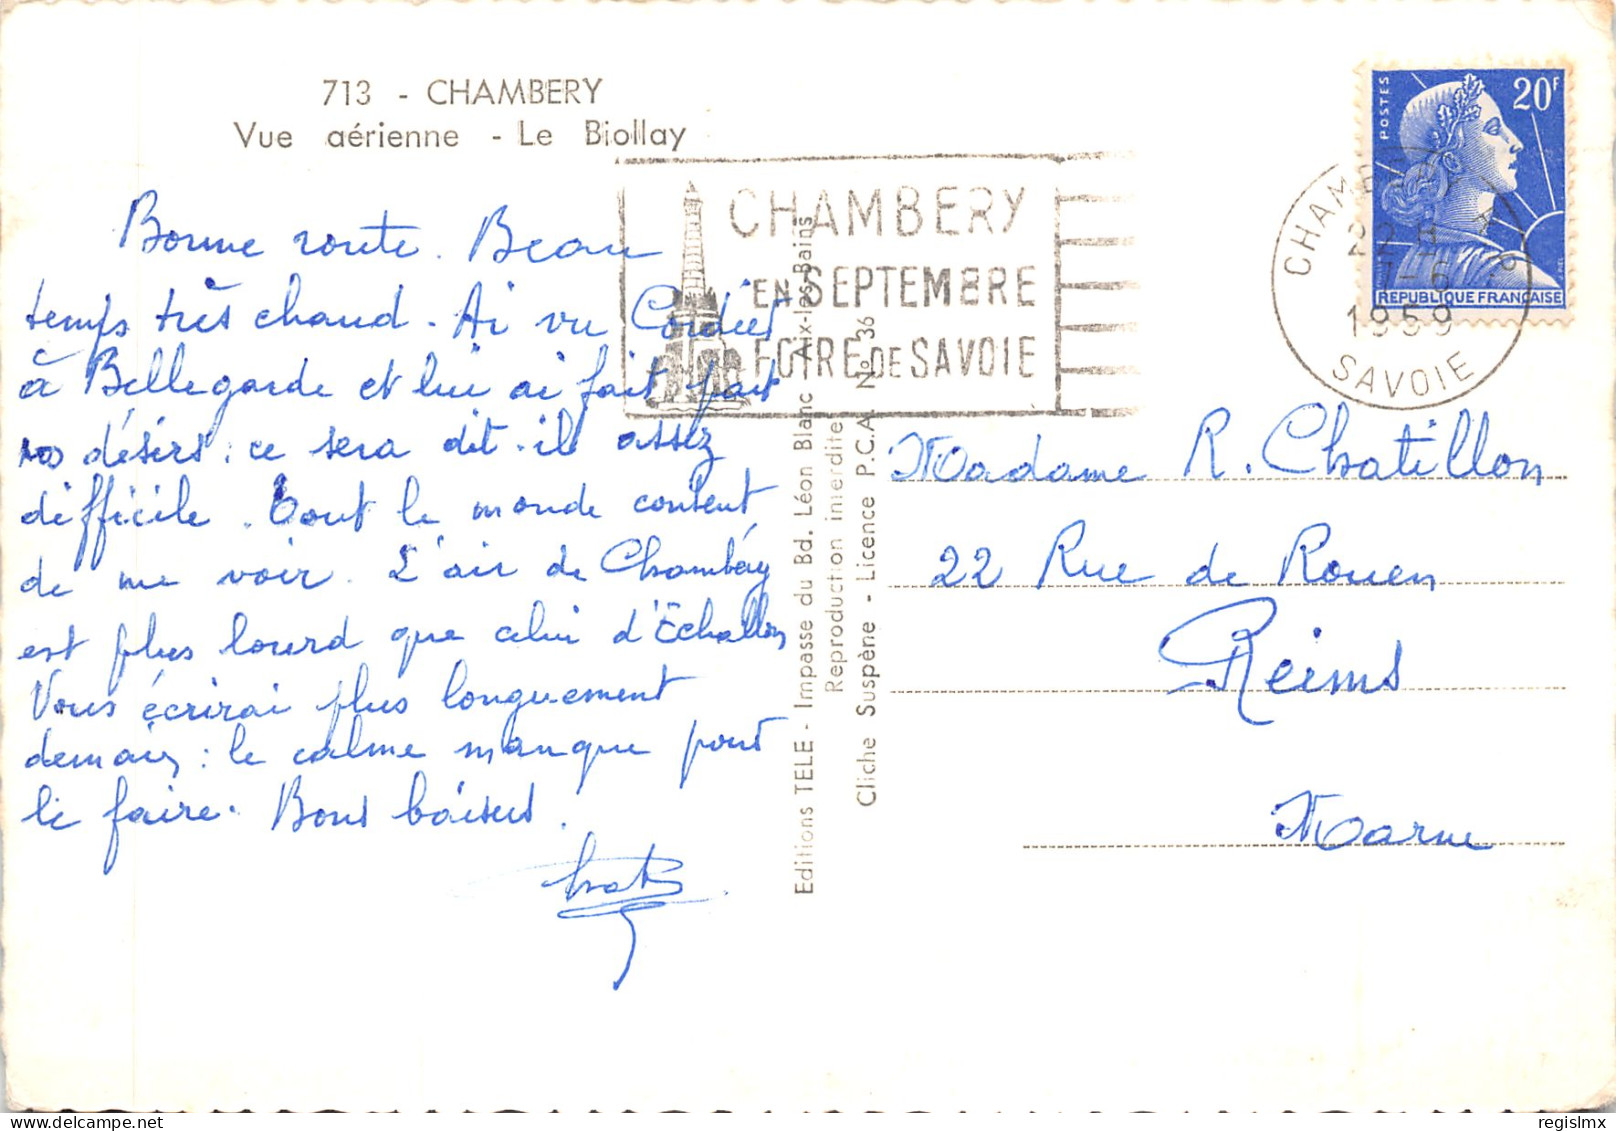 713 - CHAMBERY
Vue aérienne - Le Biollay
Bonne route. Beau
temps très chaud. Ai vu Cordier
à Bellegarde et lui ai fait part
vos désirs : ce sera dit-il assez
difficile. Tout le monde content
de me voir. L'air de Chambéry
est plus lourd que celui d'Echallon
Vous écrirai plus longuement
demain : le calme manque pour
le faire. Bons baisers.
Editions TELE - Impasse du Bd. Léon Blanc - Aix-les-Bains
Reproduction interdite
Cliche Suspène - Licence P.C.A. No 36
CHAMBERY
EN SEPTEMBRE
FOIRE DE SAVOIE
CHAMBERY
1959
SAVOIE
POSTES
20F
REPUBLIQUE FRANÇAISE
Madame R. Chatillon
22 Rue de Rouen
Reims
Marne
www.delcampe.net
regislmx